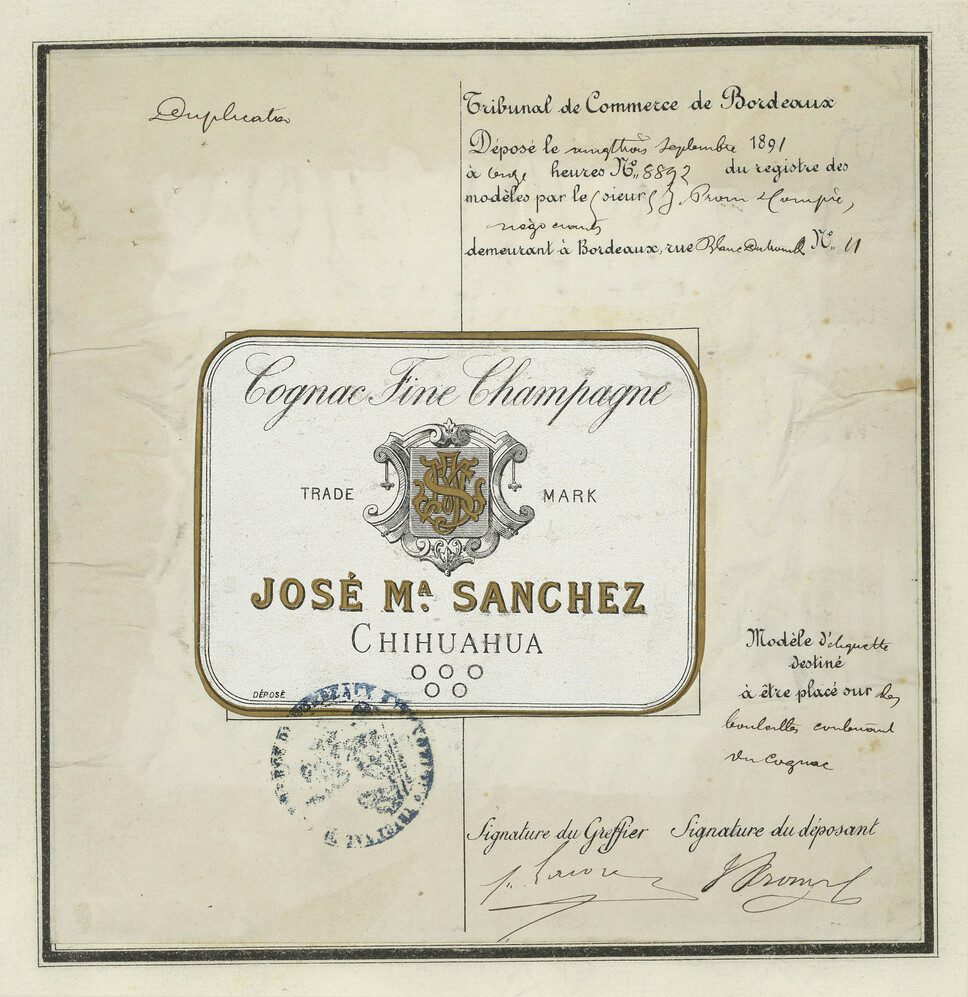 Duplicata
Tribunal de Commerce de Bordeaux
Déposé le vingt trois Septembre 1891
à onze heures No. 8892 du registre des
modèles par le sieur J. Prom & Compie,
négociants
demeurant à Bordeaux, rue Blanc Dutrouilh No. 11
Cognac Fine Champagne
TRADE MARK
JOSÉ MA. SANCHEZ
CHIHUAHUA
DÉPOSÉ
Modèle d'étiquette
destiné
à être placé sur des
bouteilles contenant
du Cognac
Signature du Greffier Signature du déposant